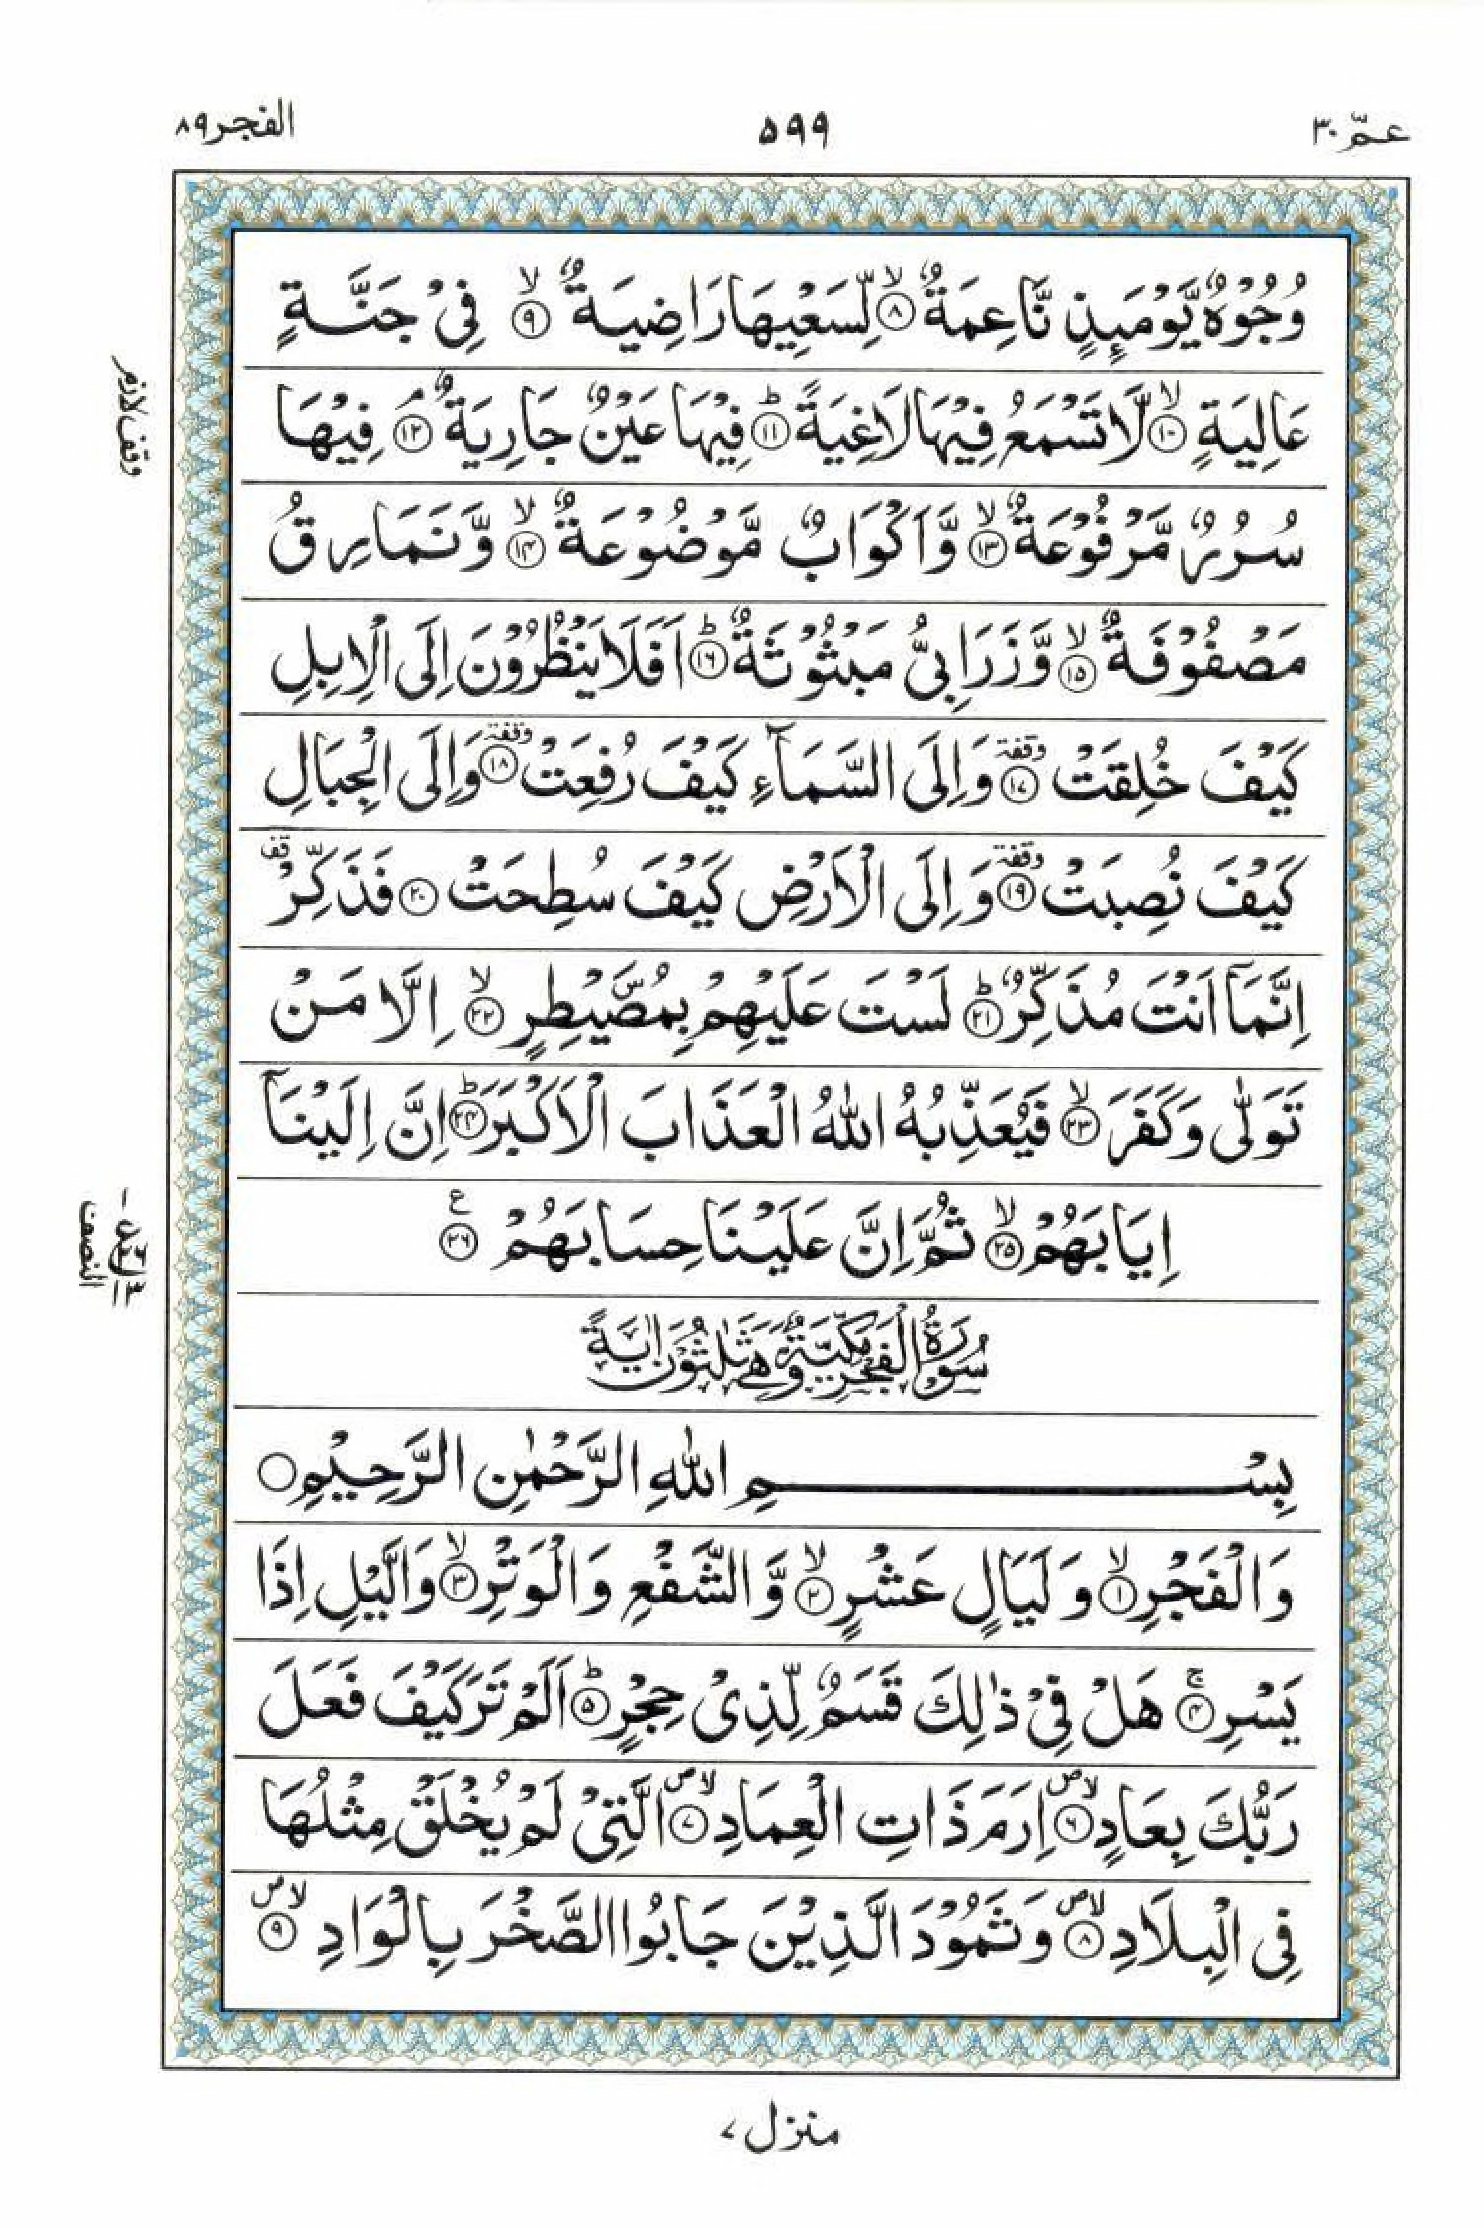 عمّ ۳۰
۵۹۹
الفجر ۸۹
وُجُوْهٌ يَّوْمَىِٕذٍ نَّاعِمَةٌ ۙ‏﴿۸﴾ لِّسَعْيِهَا رَاضِيَةٌ ۙ‏﴿۹﴾ فِىْ جَنَّةٍ
عَالِيَةٍ ۙ‏﴿۱۰﴾ لَّا تَسْمَعُ فِيْهَا لَاغِيَةً ؕ‏﴿۱۱﴾ فِيْهَا عَيْنٌ جَارِيَةٌ ۘ‏﴿۱۲﴾ فِيْهَا
وقف لازم
سُرُرٌ مَّرْفُوْعَةٌ ۙ‏﴿۱۳﴾ وَّاَكْوَابٌ مَّوْضُوْعَةٌ ۙ‏﴿۱۴﴾ وَّنَمَارِقُ
مَصْفُوْفَةٌ ۙ‏﴿۱۵﴾ وَّزَرَابِىُّ مَبْثُوْثَةٌ ؕ‏﴿۱۶﴾ اَفَلَا يَنْظُرُوْنَ اِلَى الْاِبِلِ
كَيْفَ خُلِقَتْ وقفة ﴿۱۷﴾ وَاِلَى السَّمَآءِ كَيْفَ رُفِعَتْ وقفة ﴿۱۸﴾ وَاِلَى الْجِبَالِ
كَيْفَ نُصِبَتْ وقفة ﴿۱۹﴾ وَاِلَى الْاَرْضِ كَيْفَ سُطِحَتْ ﴿۲۰﴾ فَذَكِّرْ قف
اِنَّمَآ اَنْتَ مُذَكِّرٌ ؕ‏﴿۲۱﴾ لَسْتَ عَلَيْهِمْ بِمُصَۜيْطِرٍ ۙ‏﴿۲۲﴾ اِلَّا مَنْ
تَوَلّٰى وَكَفَرَ ۙ‏﴿۲۳﴾ فَيُعَذِّبُهُ اللّٰهُ الْعَذَابَ الْاَكْبَرَ ؕ‏﴿۲۴﴾ اِنَّ اِلَيْنَآ
اِيَابَهُمْ ۙ‏﴿۲۵﴾ ثُمَّ اِنَّ عَلَيْنَا حِسَابَهُمْ ع ﴿۲۶﴾
النصف
سُوْرَةُ الْفَجْرِ مَكِّيَّةٌ وَّهِىَ ثَلٰثُوْنَ اٰيَةً
بِسْمِ اللّٰهِ الرَّحْمٰنِ الرَّحِيْمِ ○
وَالْفَجْرِ ۙ‏﴿۱﴾ وَلَيَالٍ عَشْرٍ ۙ‏﴿۲﴾ وَّالشَّفْعِ وَالْوَتْرِ ۙ‏﴿۳﴾ وَالَّيْلِ اِذَا
يَسْرِ ۚ‏﴿۴﴾ هَلْ فِىْ ذٰلِكَ قَسَمٌ لِّذِىْ حِجْرٍ ؕ‏﴿۵﴾ اَلَمْ تَرَ كَيْفَ فَعَلَ
رَبُّكَ بِعَادٍ لا ص ﴿۶﴾ اِرَمَ ذَاتِ الْعِمَادِ لا ص ﴿۷﴾ الَّتِىْ لَمْ يُخْلَقْ مِثْلُهَا
فِى الْبِلَادِ لا ص ﴿۸﴾ وَثَمُوْدَ الَّذِيْنَ جَابُوا الصَّخْرَ بِالْوَادِ لا ص ﴿۹﴾
منزل ۷